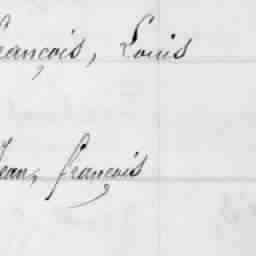 françois, Louis
Jean, françois